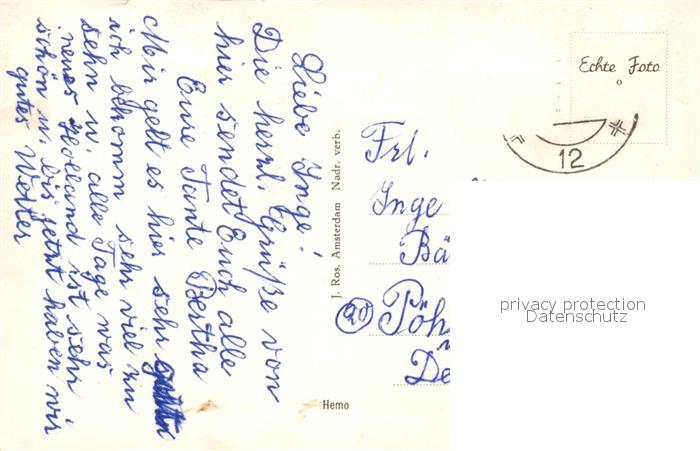 Liebe Inge!
Die herzl. Grüße von
hier sendet Euch alle
Eure Tante Bertha
Mir geht es hier sehr
ich bekomm sehr viel zu
sehn u. alle Tage was
neues Holland ist sehr
schön u. bis jetzt haben wir
gutes Wetter
J. Ros. Amsterdam Nadr. verb.
Hemo
Echte Foto
12
Frl.
Inge
Bä
20 Pöh
De
privacy protection
Datenschutz